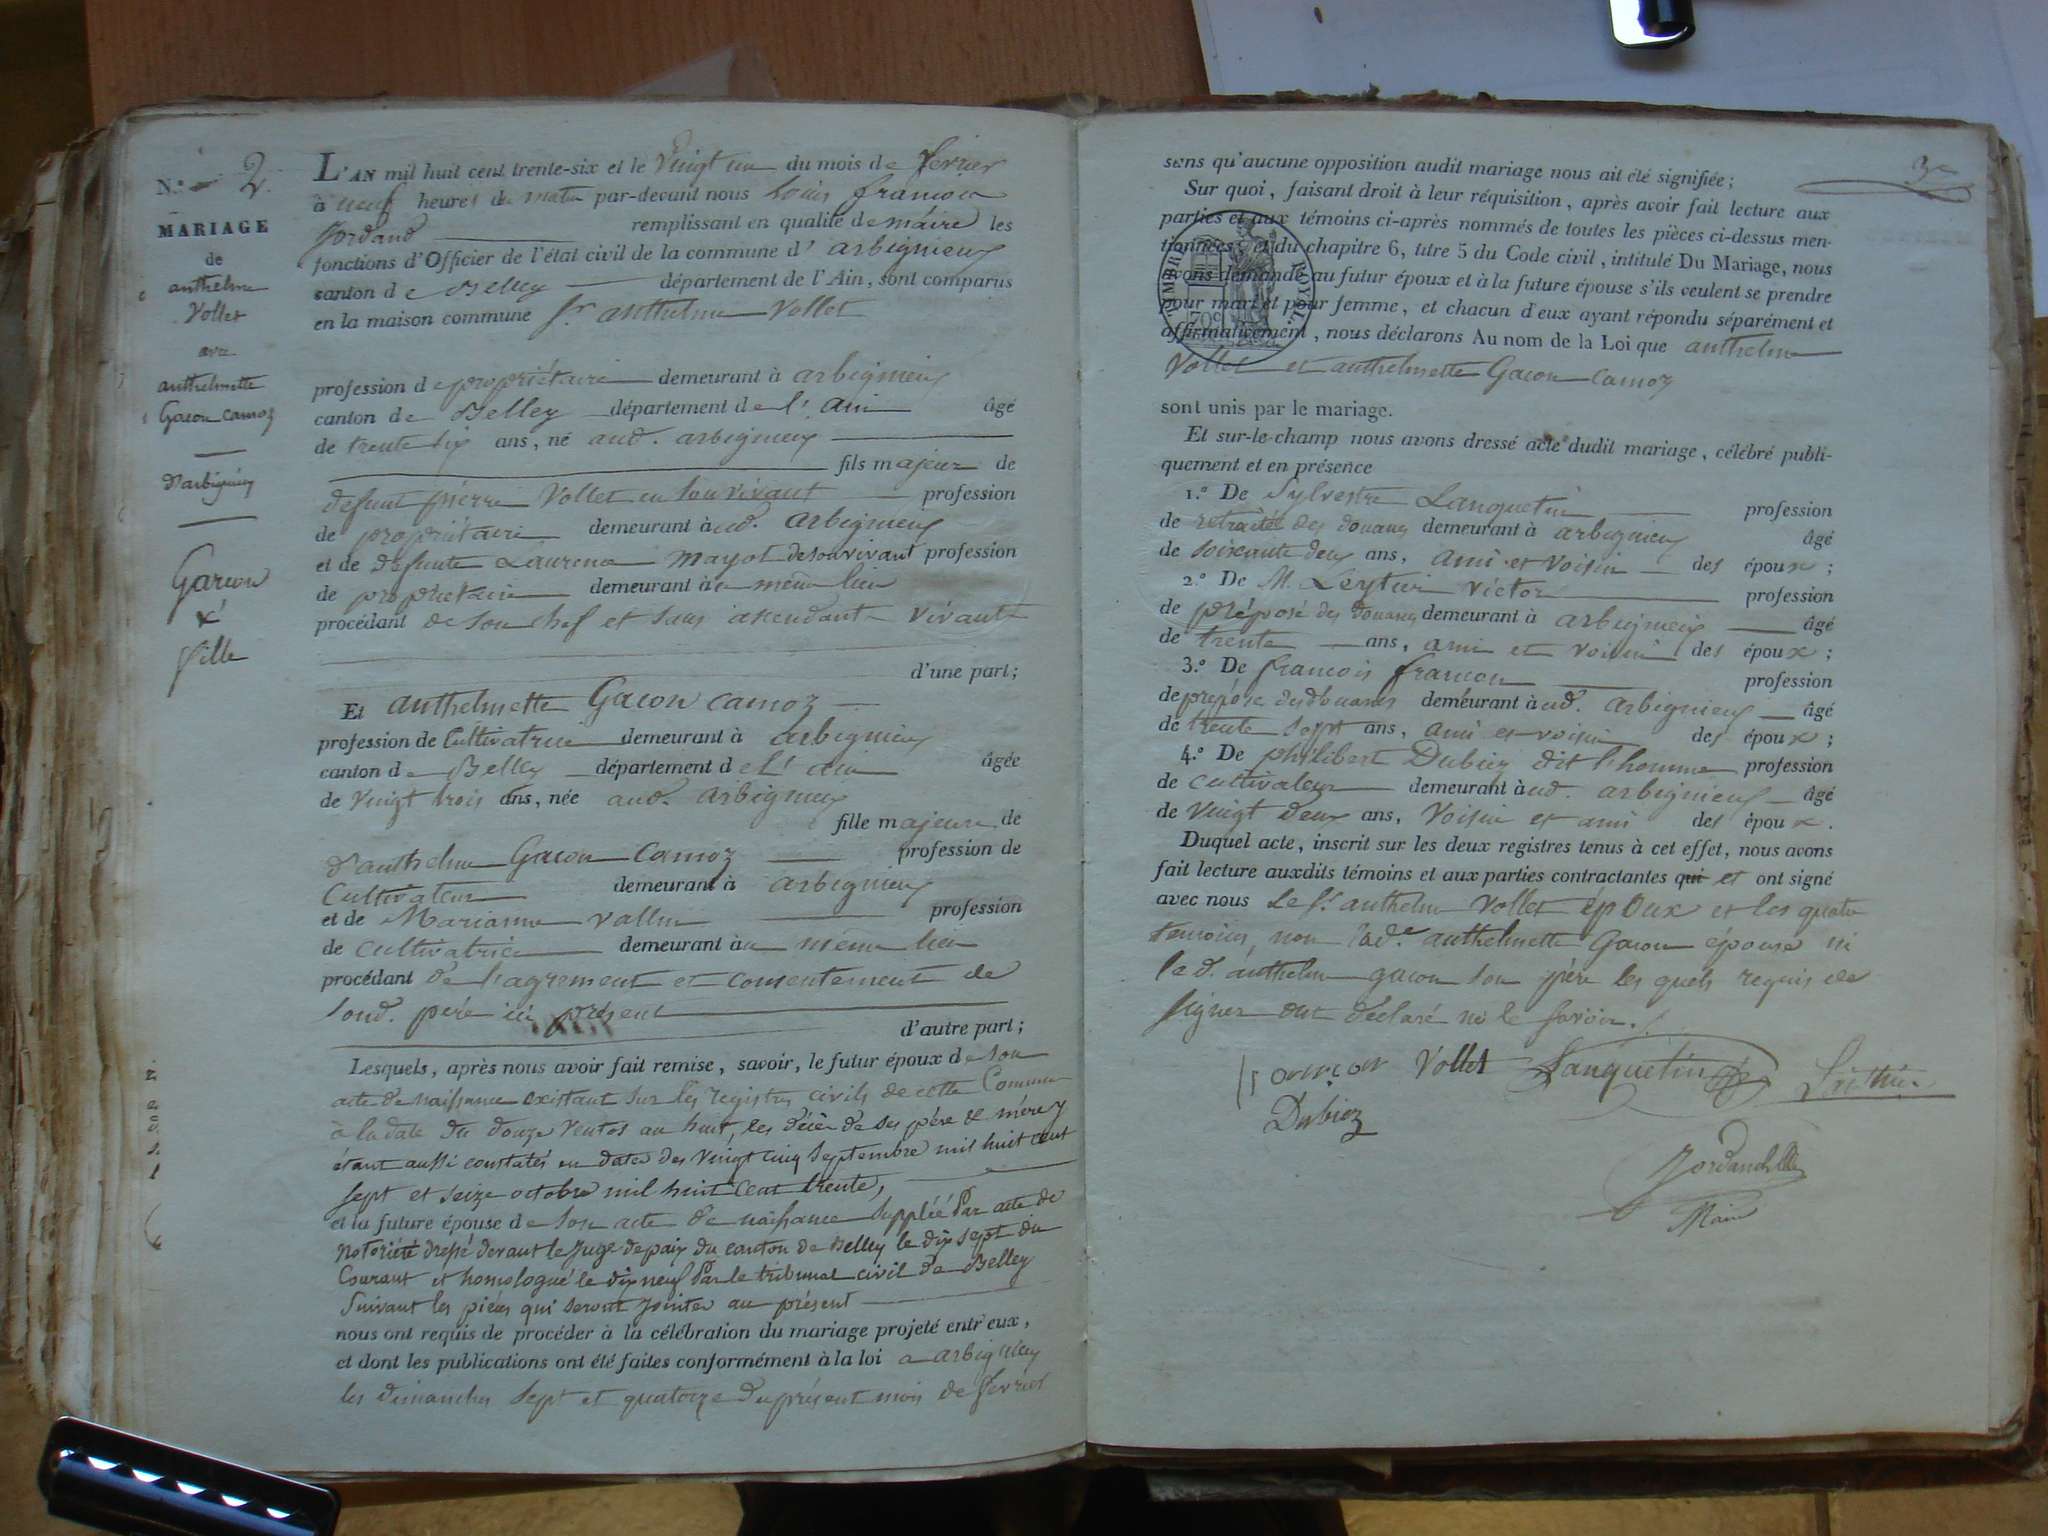 N.º 2.
MARIAGE
de
anthelme
Vollet
avec
anthelmette
Gacon camoz
d'arbignieu
Garcon
&
fille
L'AN mil huit cent trente-six et le Vingt un du mois de fevrier
à neuf heures du matin par-devant nous Louis françois
Jordand remplissant en qualité de maire les
fonctions d'Officier de l'état civil de la commune d' arbignieux
canton de Belley département de l'Ain, sont comparus
en la maison commune Sr. anthelme Vollet
profession de propriétaire demeurant à arbignieux
canton de Belley département de l'ain âgé
de trente six ans, né aud. arbignieux
fils majeur de
defunt pierre Vollet en son vivant profession
de propriétaire demeurant à ud. arbignieux
et de defunte Laurence mayot de son vivant profession
de propriétaire demeurant à u même lieu
procédant de son chef et sans ascendant vivant
d'une part;
Et anthelmette Gacon camoz
profession de Cultivatrice demeurant à arbignieux
canton de Belley département de l'ain âgée
de vingt trois ans, née aud. arbignieux
fille majeure de
d'anthelme Gacon Camoz profession de
Cultivateur demeurant à arbignieux
et de Marianne vallin profession
de cultivatrice demeurant à u même lieu
procédant de l'agrement et consentement de
sond. père ici présent
d'autre part;
Lesquels, après nous avoir fait remise, savoir, le futur époux de son
acte de naissance existant sur les registres civils de cette Commune
à la date du douze Ventos an huit, les décès de ses père & mère y
étant aussi constatés en dates des vingt cinq septembre mil huit cent
sept et seize octobre mil huit cent trente,
et la future épouse de son acte de naissance suppléé Par acte de
notoriété dressé devant le Juge de paix du canton de Belley le dix sept du
Courant et homologué le dix neuf Par le tribunal civil de Belley
Suivant les pièces qui seront Jointes au présent
nous ont requis de procéder à la célébration du mariage projeté entr'eux,
et dont les publications ont été faites conformément à la loi a arbignieu
les dimanches sept et quatorze du présent mois de fevrier
sens qu'aucune opposition audit mariage nous ait été signifiée;
Sur quoi, faisant droit à leur réquisition, après avoir fait lecture aux
parties et aux témoins ci-après nommés de toutes les pièces ci-dessus men-
tionnées, et du chapitre 6, titre 5 du Code civil, intitulé Du Mariage, nous
avons demandé au futur époux et à la future épouse s'ils veulent se prendre
pour mari et pour femme, et chacun d'eux ayant répondu séparément et
affirmativement, nous déclarons Au nom de la Loi que anthelme
Vollet et anthelmette Gacon camoz
TIMBRE ROYAL
70c
sont unis par le mariage.
Et sur-le-champ nous avons dressé acte dudit mariage, célébré publi-
quement et en présence
1.º De Sylvestre Lanquetin profession
de retraité des douanes demeurant à arbignieux âgé
de soixante deux ans, ami et voisin des époux;
2.º De M. Leytier victor profession
de préposé des douanes demeurant à arbignieux âgé
de trente ans, ami et voisin des époux;
3.º De francois francon profession
de prépose des douanes demeurant à ud. arbignieux âgé
de trente sept ans, ami et voisin des époux;
4.º De philibert Dubiez dit lhomme profession
de cultivateur demeurant à ud. arbignieux âgé
de vingt deux ans, Voisin et ami des époux.
Duquel acte, inscrit sur les deux registres tenus à cet effet, nous avons
fait lecture auxdits témoins et aux parties contractantes qui et ont signé
avec nous Le Sr. anthelme Vollet époux et les quatre
temoins, non lade. anthelmette Gacon épouse ni
le d. anthelme gacon son père les quels requis de
signer ont déclaré ne le savoir.
francon Vollet Lanquetin
Dubiez
Jordand
Maire